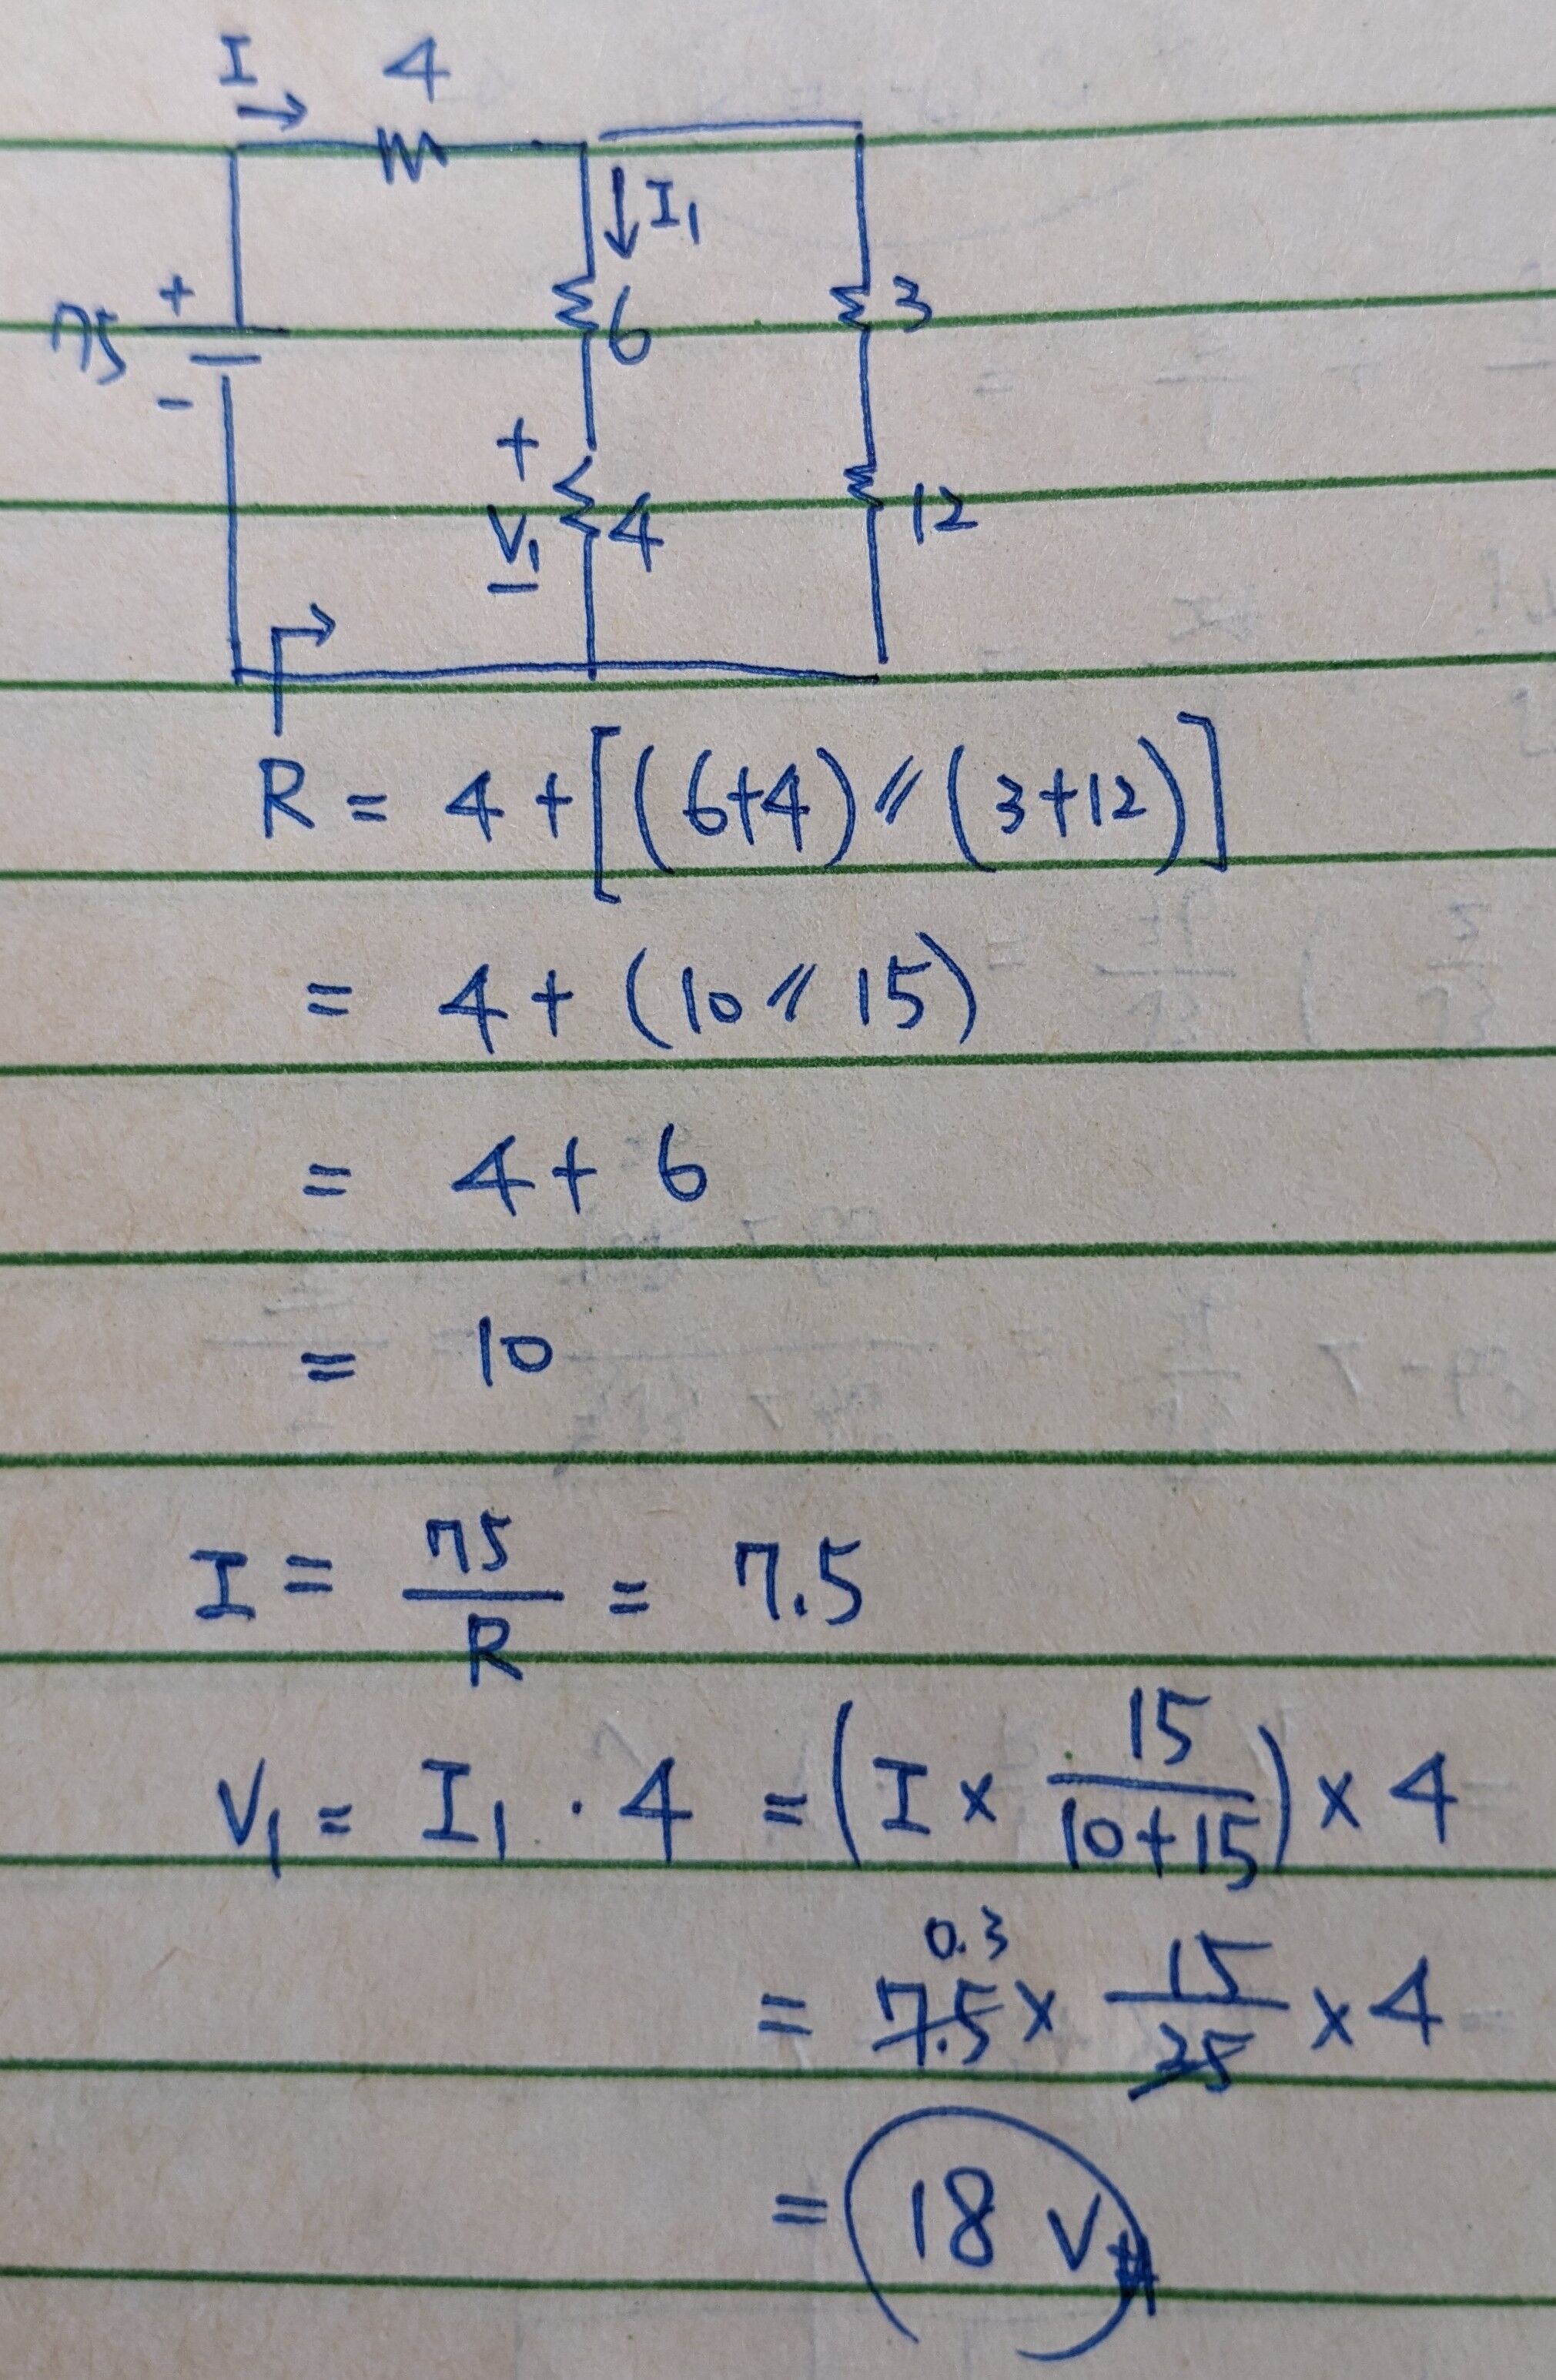 I 4
I₁
+
75
-
6
3
+
V₁
-
4
12
R = 4 + [(6+4) // (3+12)]
= 4 + (10 // 15)
= 4 + 6
= 10
I = 75/R = 7.5
V₁ = I₁ · 4 = (I × 15/(10+15)) × 4
0.3
= 7.5 × 15/25 × 4
= 18 V